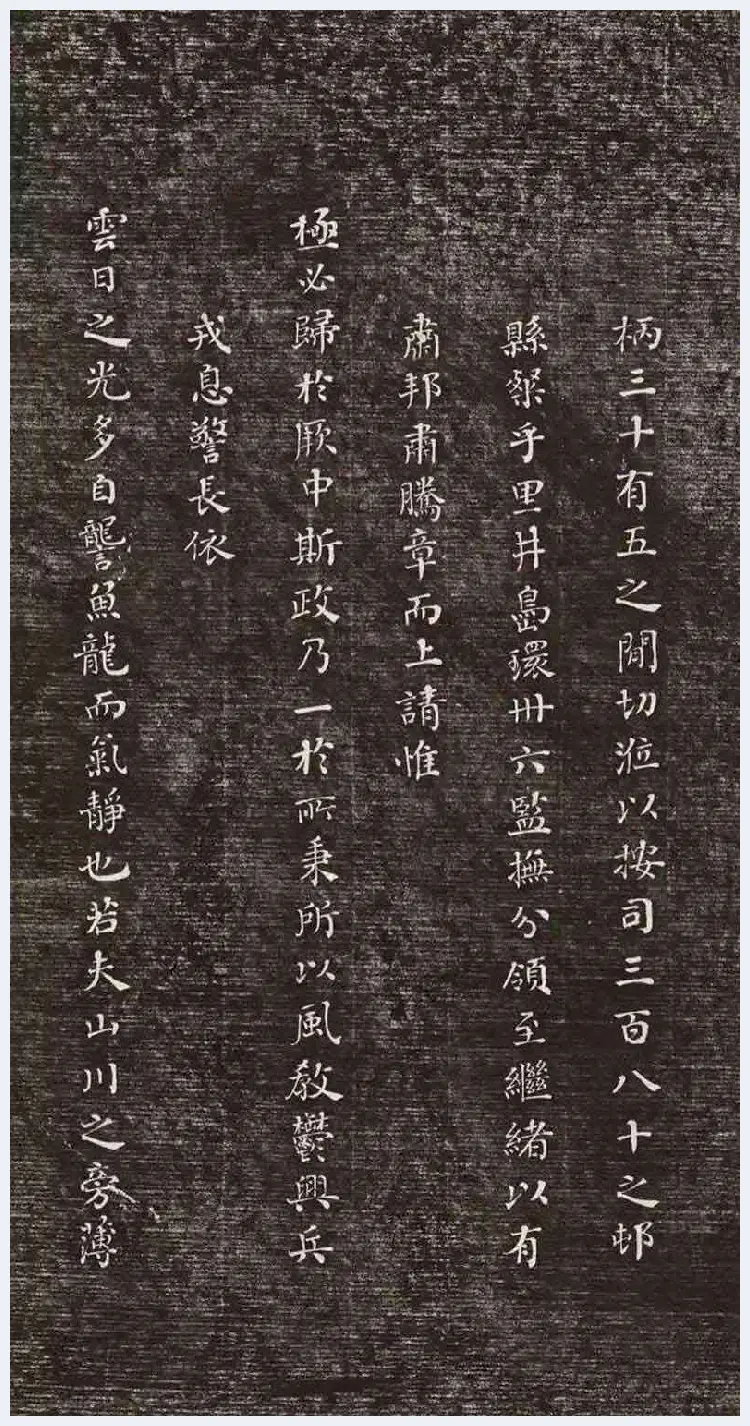 柄三十有五之間切涖以按司三百八十之邨
縣粲乎里井島環卌六監撫分領至繼緒以有
肅邦肅騰章而上請惟
極必歸於厥中斯政乃一於所秉所以風教鬱興兵
戎息警長依
雲日之光多自讋魚龍而氣靜也若夫山川之旁薄